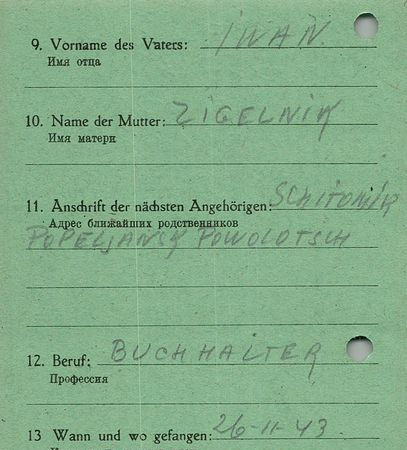 9. Vorname des Vaters: IWAN
Имя отца
10. Name der Mutter: ZIGELNIK
Имя матери
11. Anschrift der nächsten Angehörigen: SCHITOMIR
Адрес ближайших родственников
POPELJANSK POWOLOTSCH
12. Beruf: BUCHHALTER
Профессия
13 Wann und wo gefangen: 26-11-43